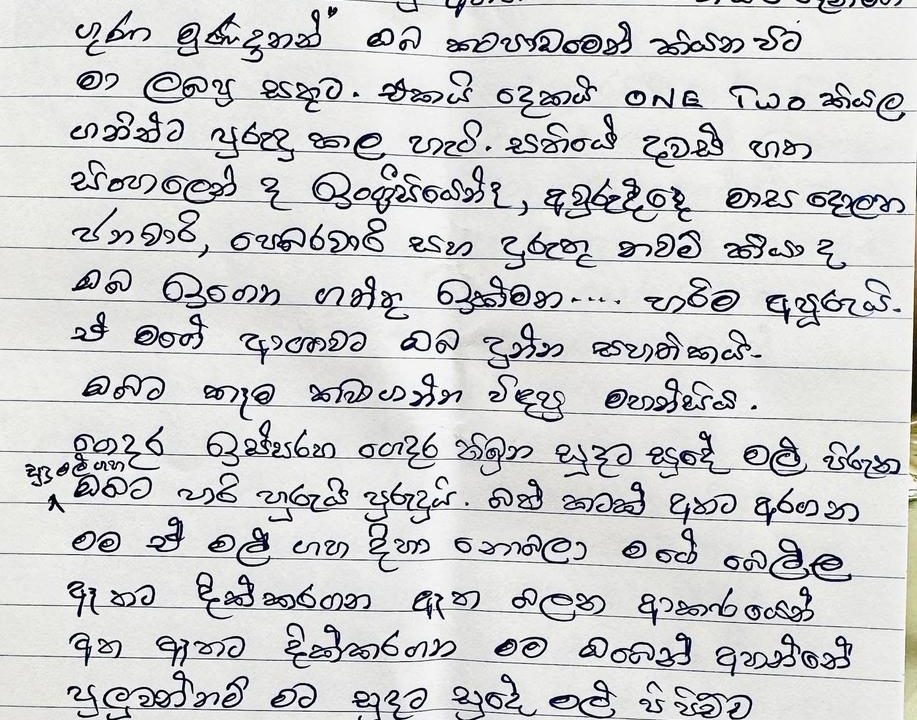 ගුරු මුණිදුනන්" ඔබ කටපාඩමෙන් කියන විට
මා ලබපු සතුට. එකයි දෙකයි ONE TWO කියල
ගනින්ට පුරුදු කල හැටි. සතියේ දවස් හත
සිංහලෙන් ද ඉංග්‍රීසියෙන්ද, අවුරුද්දේ මාස දොලහ
ජනවාරි, පෙබරවාරි සහ දුරුතු නවම් කියා ද
ඔබ ඉගෙන ගත්තු ඉක්මන.... හරිම අපූරුයි.
ඒ මගේ ආශාවට ඔබ දුන්න සහතිකයි.
ඔබට කෑම කවාගන්න විඳපු මහන්සියි.
ගෙදර ඉස්සරහ ගෙදර තිබුන සුදට සුදේ මල් පිරුන
සුදු මල් ගහ
ඔබට හරි හුරුයි පුරුදුයි. බත් කටක් අතට අරගන
මම ඒ මල් ගහ දිහා නොබලා මගේ බෙල්ල
ඈතට දික්කරගන ඈත බලන ආකාරයෙන්
අත ඈතට දික්කරගන මම ඔබෙන් අහන්නේ
පුලුවන්නම් මට සුදට සුදේ මල් පිපිච්ච